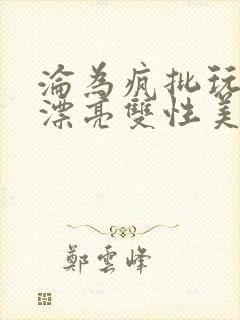 淪為瘋批玩
漂亮雙性美
鄭雲峰